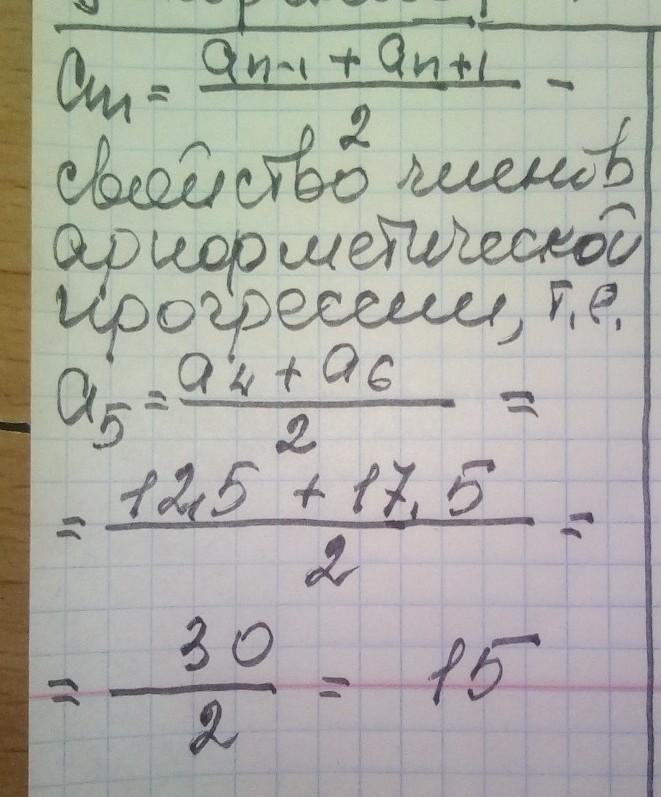 aₙ = (aₙ₋₁ + aₙ₊₁) / 2 -
свойство членов
арифметической
прогрессии, т.е.
a₅ = (a₄ + a₆) / 2 =
= (12,5 + 17,5) / 2 =
= 30 / 2 = 15